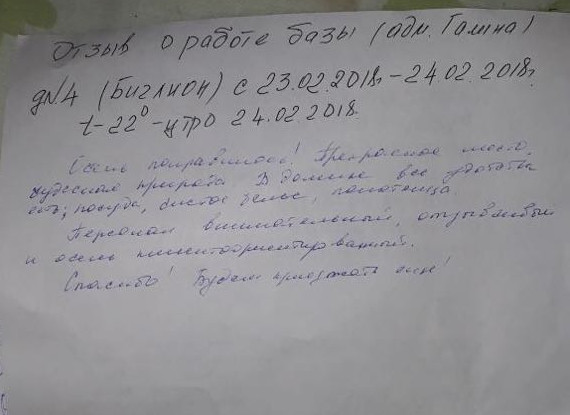 Отзыв о работе базы (адм. Галина)
д№4 (Биглион) с 23.02.2018г. - 24.02.2018г.
t-22° - утро 24.02.2018.
Очень понравилось! Прекрасное место,
чудесная природа. В домике все удобства
есть; посуда, чистое белье, полотенца.
Персонал внимательный, отзывчивый
и очень клиентоориентированный.
Спасибо! Будем приезжать еще!